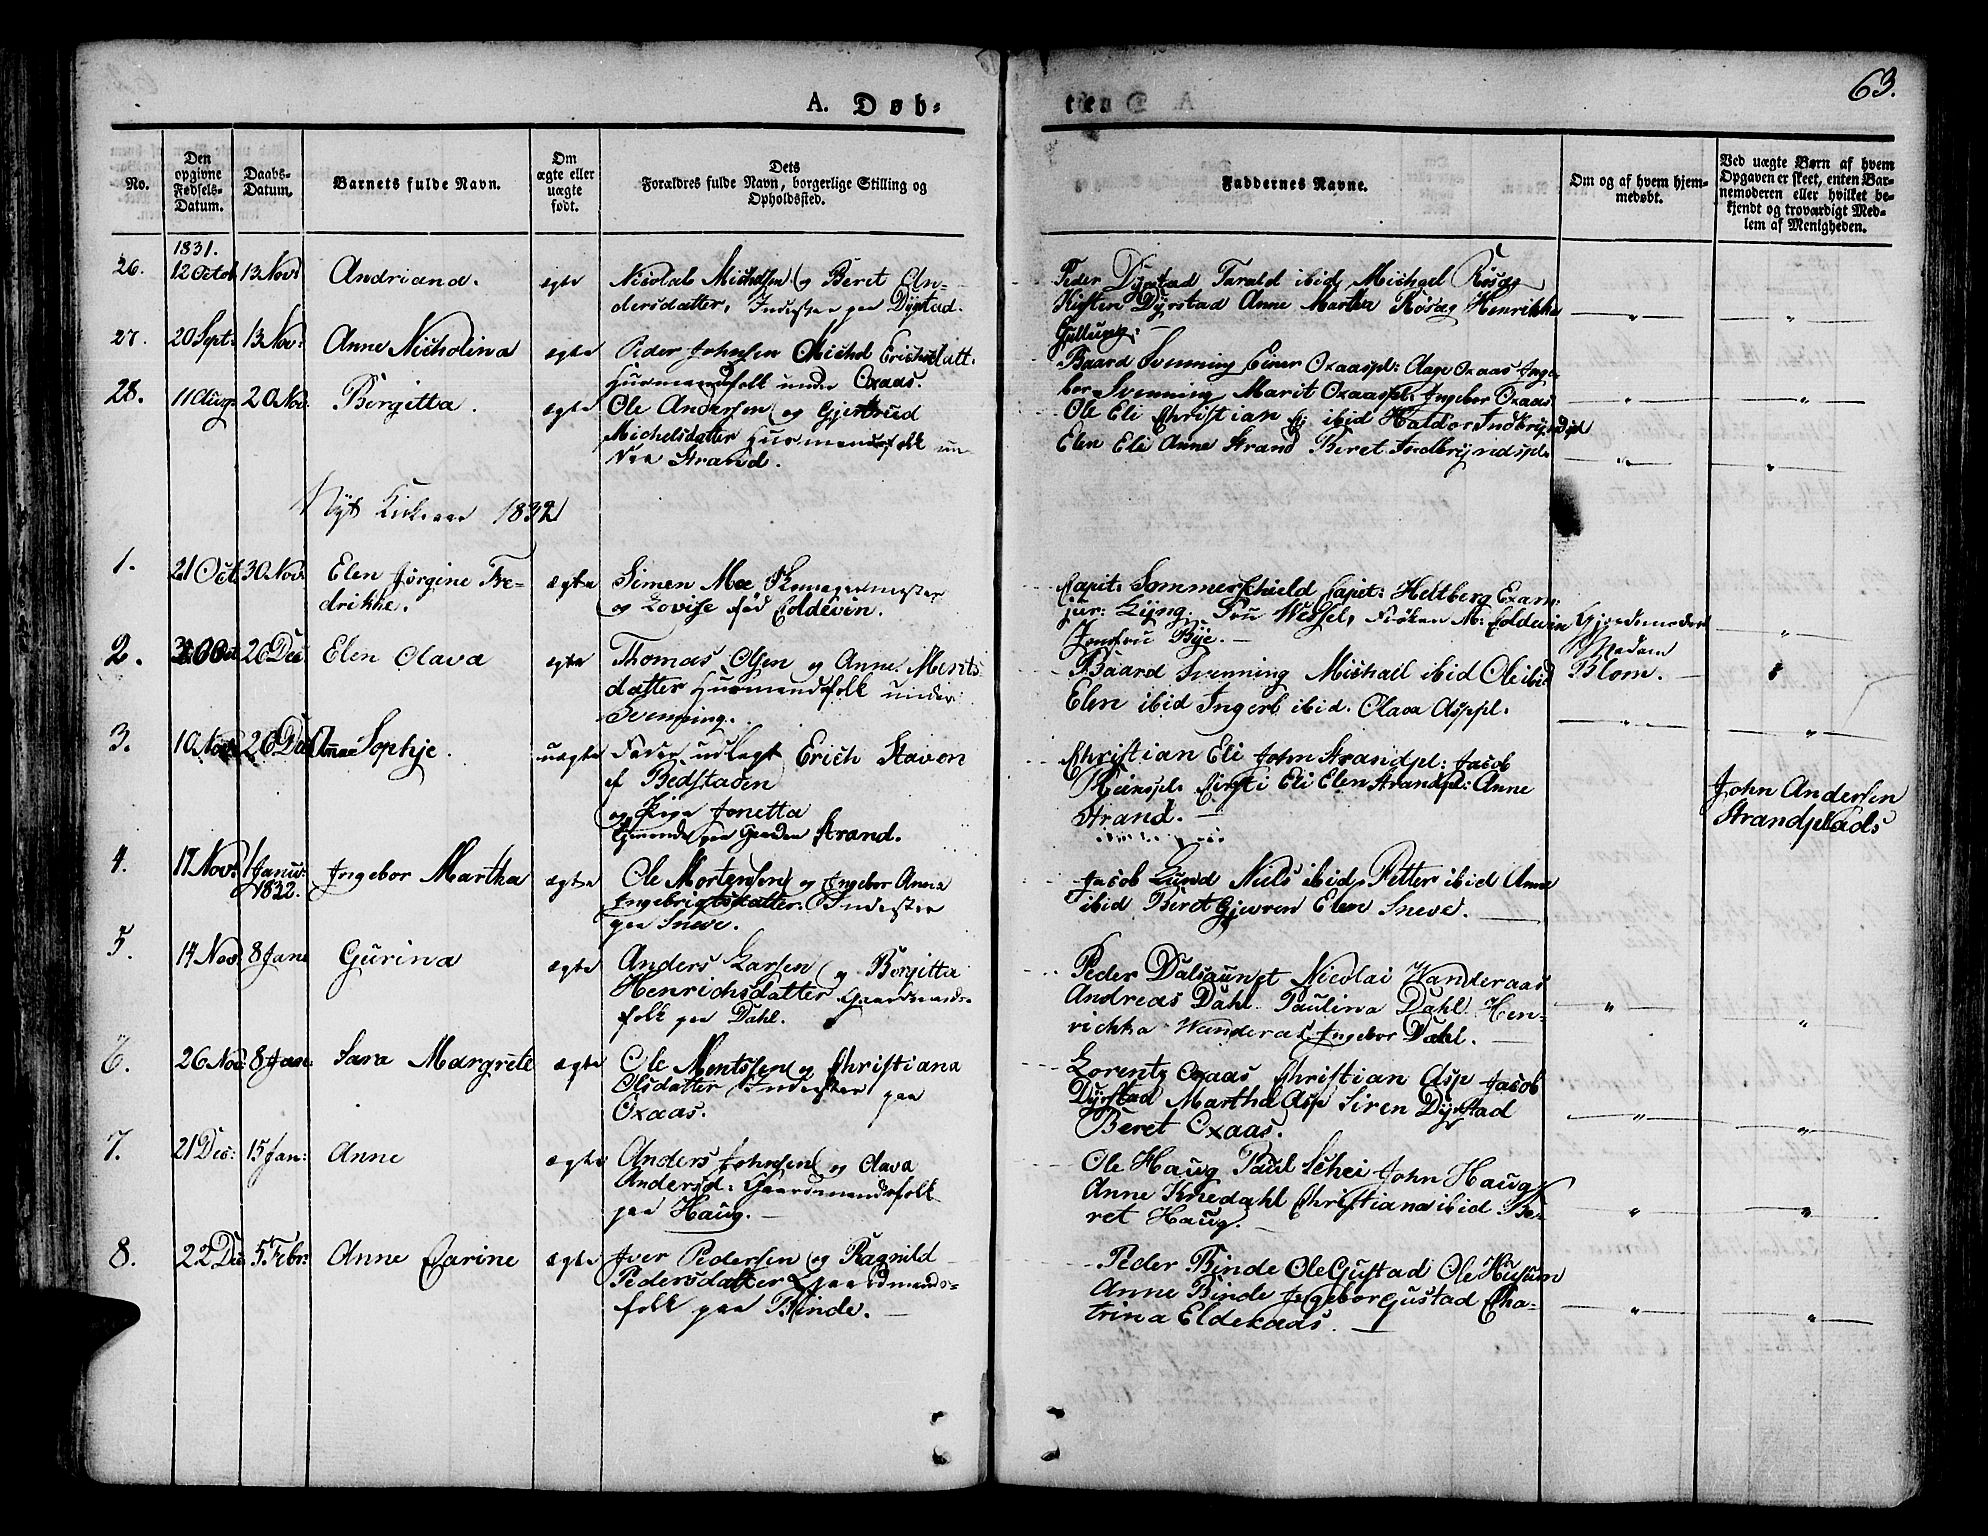 63.
A. Døb-
ten
No.
Den
opgivne
Fødsels-
Datum.
Daabs-
Datum.
Barnets fulde Navn.
Om
ægte eller
uægte
født.
Dets
Forældres fulde Navn, borgerlige Stilling og
Opholdssted.
Faddernes Navne.
Om og af hvem hjem-
medøbt.
Ved uægte Børn af hvem
Opgaven er skeet, enten Bar-
nemoderen eller hvilket be-
kjendt og troværdigt Med-
lem af Menigheden.
1831.
26. 12 Octob 13 Nov: Andriana. egte Nicolai Michelsen og Beret An-
dersdatter, Inderster paa Dyrstad.
Peder Dyrstad Tarald ibid, Michael Røsæg
Kirsten Dyrstad Anne Martha Røsæg Henrikke
27. 20 Sept: 13 Nov: Anne Nicholina ægte Peder Johnsen Michel Erichsdatt.
Huusmandsfolk under Oxaas.
Baard Svenning Einer Oxaaspl: Aage Oxaas Inge-
bor Svenning Marit Oxaaspl: Ingebor Oxaas
28. 11 Aug: 20 Nov. Bergitta. ægte Ole Andersen og Gjertrud
Michelsdatter Huusmandsfolk un-
der Strand.
Ole Eli Christian Eli ibid Haldor Inderyrdspl
Elen Eli Anne Strand Beret Inderyridspl.
Nyt Kirkeaar 1832
1. 21 Oct. 30 Nov. Elen Jørgine Fre-
drikke. ægte Simen Moe
og Lovise fød Coldevin.
Capit: Sommerschield Capit: Heltberg Exam:
jur: Lÿng. Fru Wessel, Frøken M: Coldevin
Jomfru Bÿe.
Gjordemoder
Madam
Blom.
2. 26 Dec Elen Olava egte Thomas Olsen og Anne Merits
datter Huusmandsfolk under
Svenning.
Baard Svenning Michael ibid Ole ibid
Elen ibid Ingerb ibid. Olava Asppl.
3. 10 Nov: 26 Dec Anne Sophje. uægte Fader udlagt Erich Staven
af Bedstaden
og Pige Jonetta
tjenende paa Gaarden Strand.
Christian Eli John Strandpl: Jacob
Reinspl. Kirsti Eli Elen Strandpl: Anne
Strand.
John Andersen
Strandplads
4. 17 Nov: 1 Janu:
1832. Ingebor Martha ægte Ole Mortensen og Ingebor Anna
Ingebrigtsdatter Inderster
paa Sneve.
Jacob Lund Niels ibid, Petter ibid Anne
ibid Beret Gjevren Elen Sneve.
5. 14 Nov: 8 Jane Gurina ægte Anders Larsen og Borgitta
Henrichsdatter Gaardmands-
folk paa Dahl.
Peder Dalsaunet Nicolai Wanderaas
Andreas Dahl Paulina Dahl Hen-
richka Wanderas Ingebor Dahl.
6. 26 Nov: 8 Jane: Sara Margrete ægte Ole Mentssen og Christiana
Olsdatter Inderster paa
Oxaas.
Lorents Oxaas Christian Asp Jacob
Dÿrstad Martha Asp Siren Dÿrstad
Beret Oxaas.
7. 21 Dec: 15 Jan: Anne ægte Anders Johnsen og Olava
Andersd: Gaardmandsfolk
paa Haug.
Ole Haug Paul Schei John Haug
Anne Knedahl Christiana ibid Be-
ret Haug.
8. 22 Dec 5 Febr: Anne Carine ægte Iver Pedersen og Ragnild
Pedersdatter Gaardmands-
folk paa Binde.
Peder Binde Ole Gustad Ole Husum
Anne Binde Ingebor Gustad Cha-
trina Eldekaas.